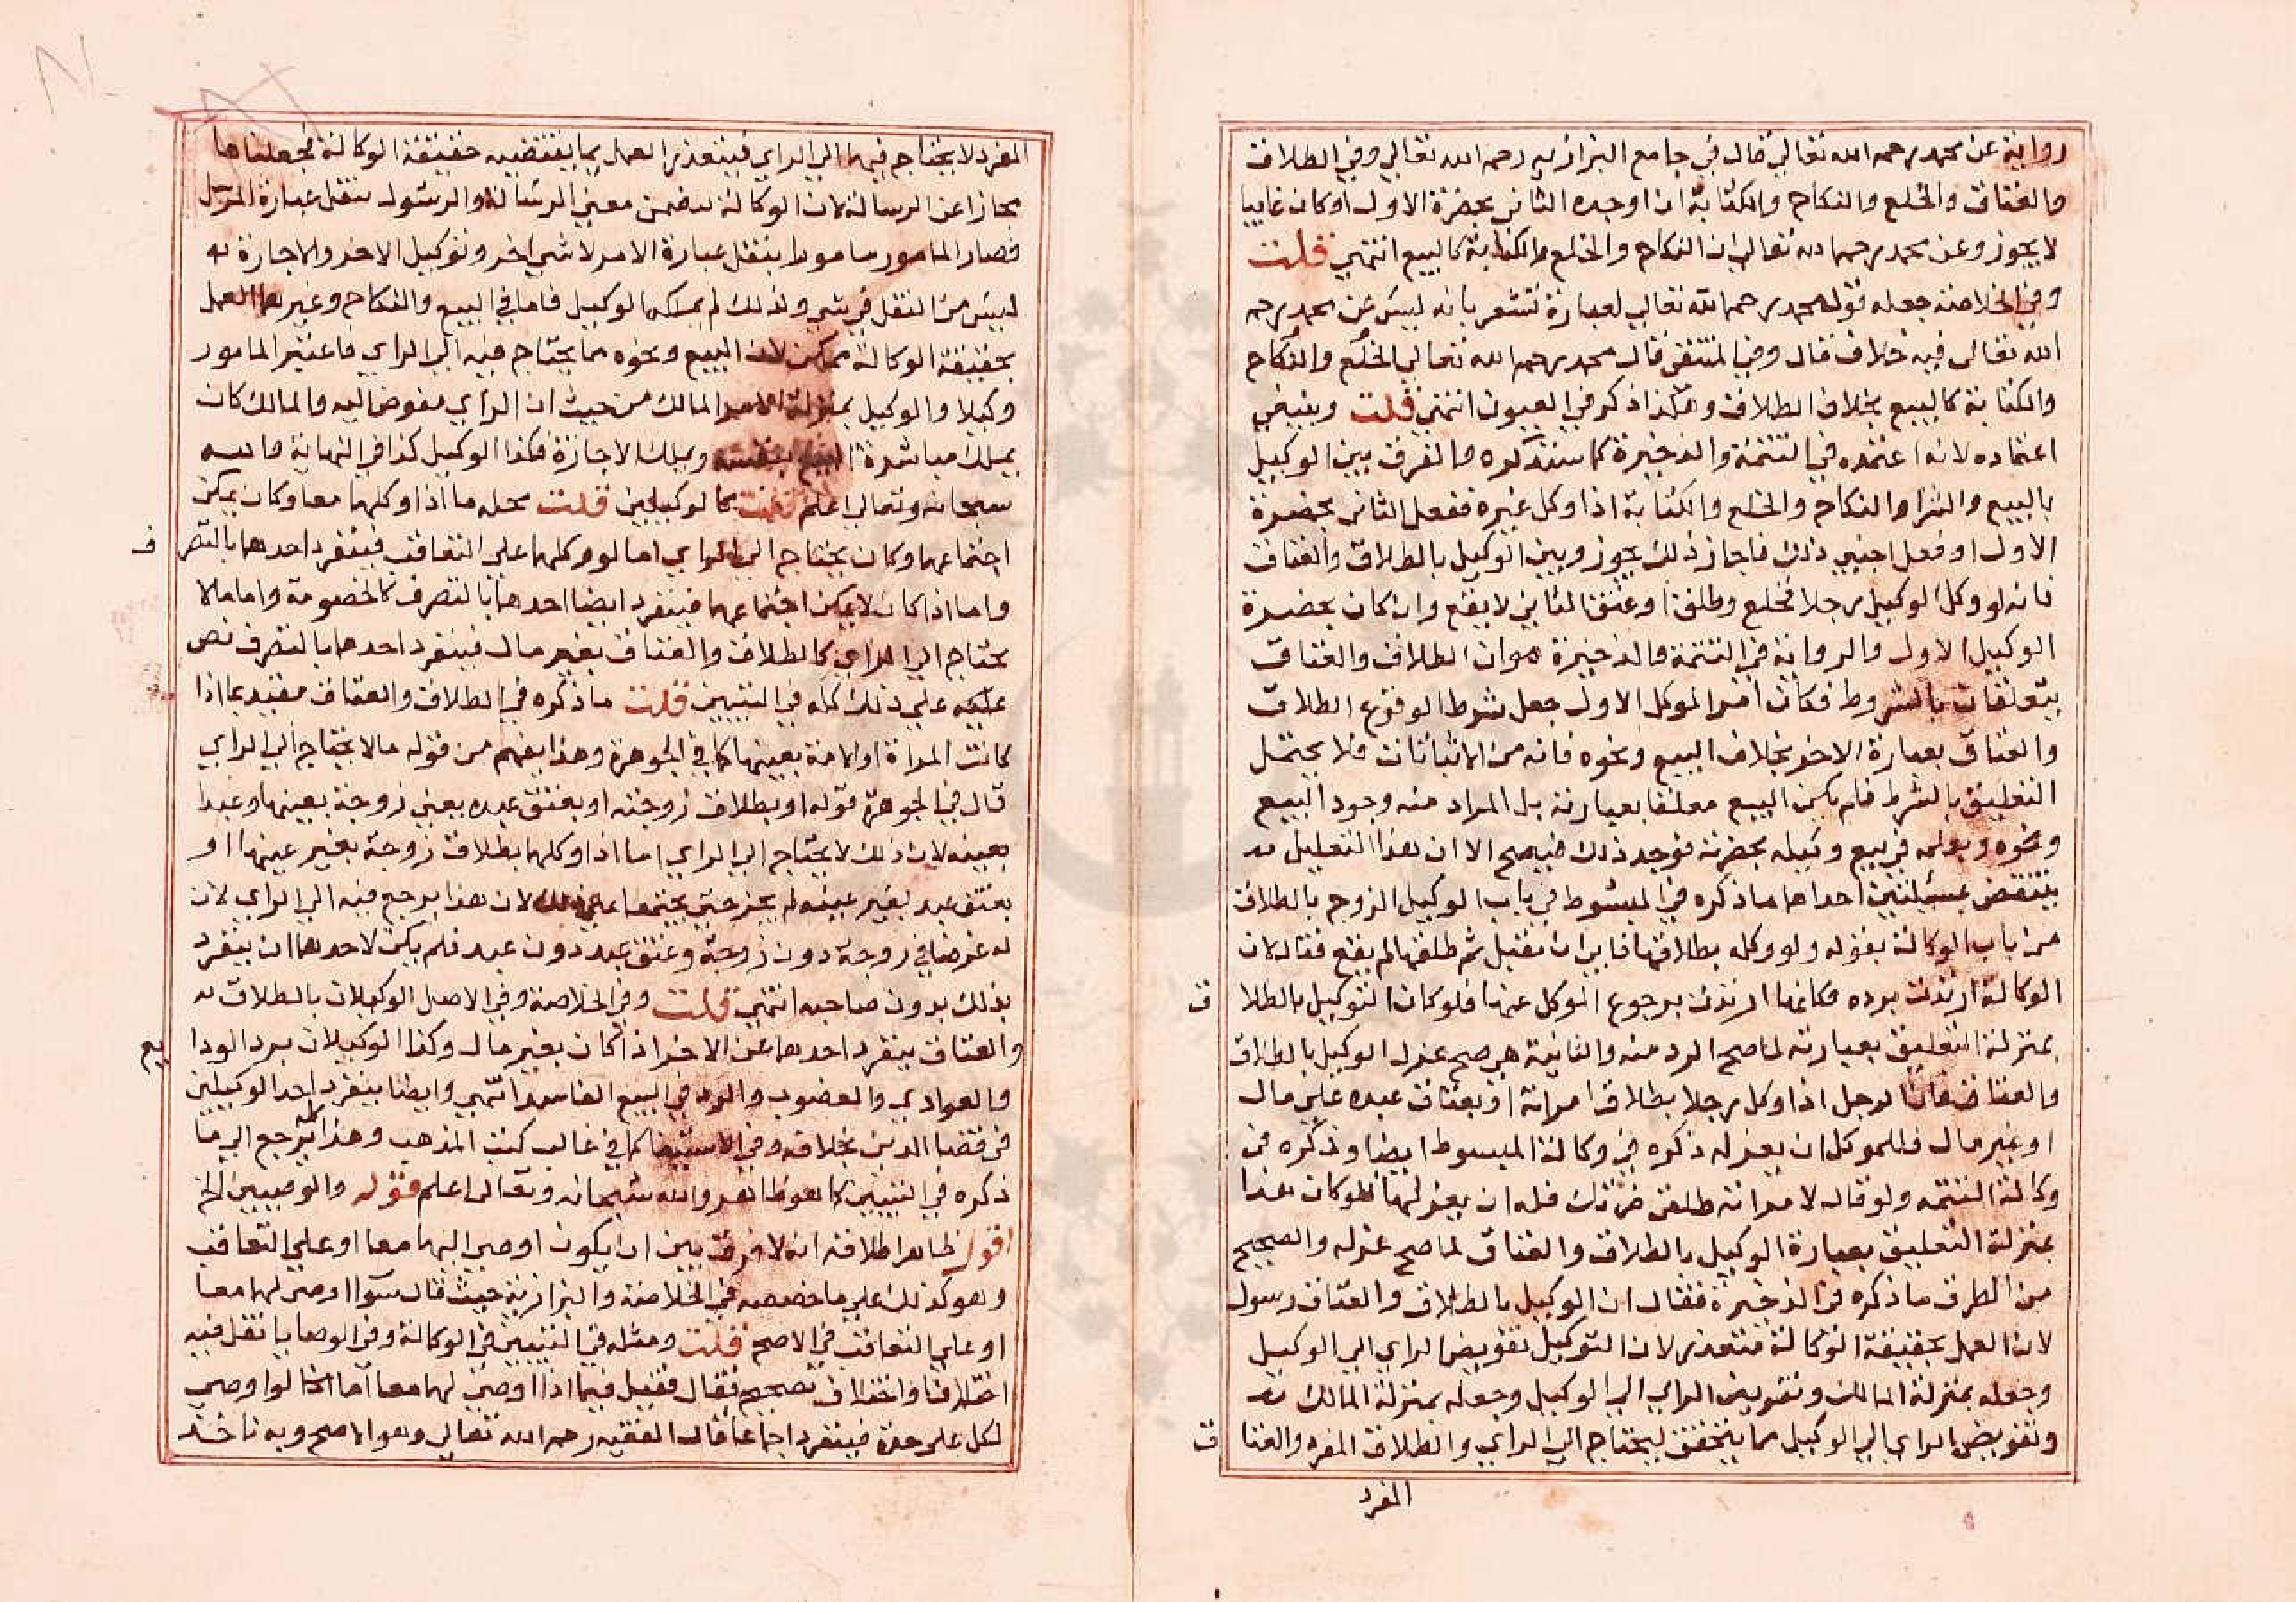 رواية عن محمد رحمه الله تعالي قال في جامع البزازيه رحمه الله تعالي وفي الطلاق
والعتاق والخلع والنكاح والكتابة ان اوجده الثاني بحضرة الاول او كان غايبا
لا يجوز وعن محمد رحمه الله تعالي ان النكاح والخلع والكتابة كالبيع انتهي قلت
وفي الخلاصة جعله قول محمد رحمه الله تعالي لعبارة تشعر بانه ليس عن محمد رحمه
الله تعالي فيه خلاف قال وفي المنتقى قال محمد رحمه الله تعالي الخلع والنكاح
والكتابة كالبيع بخلاف الطلاق وهكذا ذكر في العيون انتهي قلت وينبغي
اعتماده لانه اعتمده في التتمة والذخيرة كما سنذكره والفرق بين الوكيل
بالبيع والشرا والنكاح والخلع والكتابة اذا وكل غيره ففعل الثاني بحضرة
الاول او فعل اجنبي ذلك فاجاز ذلك يجوز وبين الوكيل بالطلاق والعتاق
فانه لو وكل الوكيل رجلا فخلع وطلق او عتق الثاني لا يقع وان كان بحضرة
الوكيل الاول والرواية في التتمة والذخيرة هو ان الطلاق والعتاق
يتعلقان بالشروط فكان امر الموكل الاول جعل شرط الوقوع الطلاق
والعتاق بعبارة الاخر بخلاف البيع ونحوه فانه من الاثباتات فلا يحتمل
التعليق بالشرط فلم يكن البيع معلقا بعبارته بل المراد منه وجود البيع
ونحوه وبعلمه في بيع وكيله بحضرته فوجد ذلك فيصح الا ان هذا التعليل
ينتقض بمسئلتين احداهما ما ذكره في المبسوط في باب الوكيل الزوج بالطلاق
من باب الوكالة بقوله ولو وكله بطلاقها فابي ان يقبل ثم طلقها لم يقع فقال لان
الوكالة ارتدت برده فكانها ارتدت برجوع الموكل عنها فلو كان التوكيل بالطلا ق
بمنزلة التعليق بعبارته لما صح الرد منه والثانية هي صح عزل الوكيل بالطلاق
والعتاق فان الرجل اذا وكل رجلا بطلاق امراته او بعتاق عبده علي مال
او غير مال فللموكل ان يعزله ذكره في وكالة المبسوط ايضا وذكره في
وكالة التتمه ولو قال لامراته طلقي ضرتك فله ان يعزلها فلو كان هذا
بمنزلة التعليق بعبارة الوكيل بالطلاق والعتاق لما صح عزله والصحيح
من الطرق ما ذكره في الذخيرة فقال ان الوكيل بالطلاق والعتاق رسول
لان العمل بحقيقة الوكالة متعذر لان التوكيل تفويض الراي الي الوكيل
وجعله بمنزلة المالك وتفويض الراي الي الوكيل وجعله بمنزلة المالك
وتفويض الراي الي الوكيل مما يتحقق ليحتاج الي الراي والطلاق المفرد والعتا ق
المفرد
المفرد لا يحتاج فيهما الي الراي فيتعذر العمل بما يقتضيه حقيقة الوكالة فجعلناها
مجازا عن الرسالة لان الوكالة تتضمن معني الرسالة والرسول ينقل عبارة المرسل
فصار المامور مامورا بنقل عبارة الامر لا شي اخر وتوكيل الاخر والاجازة
ليس من النقل في شي ولذلك لم يملكه الوكيل فاما في البيع والنكاح وغيرهما العمل
بحقيقة الوكالة ممكن لان البيع ونحوه مما يحتاج فيه الي الراي فاعتبر المامور
وكيلا والوكيل بمنزلة الامر المالك من حيث ان الراي مفوض اليه والمالك كان
يملك مباشرة البيع بنفسه ويملك الاجازة فكذا الوكيل كذا في النهاية والله
سبحانه وتعالي اعلم كالوكيلين قلت محله ما اذا وكلهما معا وكان يمكن
اجتماعهما وكان يحتاج الي الراي اما لو وكلهما علي التعاقب فينفرد احدهما بالتصر ف
واما اذا كان لا يمكن اجتماعهما فينفرد ايضا احدهما بالتصرف كالخصومة واما ما لا
يحتاج الي الراي كالطلاق والعتاق بغير مال فينفرد احدهما بالتصرف نص
عليه علي ذلك كله في التبيين قلت ما ذكره في الطلاق والعتاق مقيد بما اذا
كانت المراة او الامة بعينها كما في الجوهرة وهذا يفهم من قوله ما لا يحتاج الي الراي
قال في الجوهرة قوله او بطلاق زوجته او بعتق عبده يعني زوجة بعينها وعبدا
بعينه لان ذلك لا يحتاج الي الراي اما اذا وكلهما بطلاق زوجة بغير عينها او
بعتق عبد بغير عينه لم يجز حتي يجتمعا علي ذلك لان هذا يرجع فيه الي الراي لان
له غرضا في زوجة دون زوجة وعتق عبد دون عبد فلم يكن لاحدهما ان ينفرد
بذلك بدون صاحبه انتهي قلت وفي الخلاصة وفي الاصل الوكيلان بالطلاق
والعتاق ينفرد احدهما عن الاخر اذا كان بغير مال وكذا الوكيلان برد الودا يع
والعواري والغصوب والرد في البيع الفاسد انتهي وايضا ينفرد احد الوكيلين
في قضا الدين بخلافه وفي الاستيفا كما في غالب كتب المذهب وهذا كله يرجع الي ما
ذكره في التبيين كما هو ظاهر والله سبحانه وتعالي اعلم قوله والوصيين الخ
اقول ظاهر اطلاقه انه لا فرق بين ان يكون اوصي اليهما معا او علي التعاقب
وهو كذلك علي ما خصصه في الخلاصة والبزازية حيث قال سوآ اوصي لهما معا
او علي التعاقب في الاصح قلت ومثله في التبيين في الوكالة وفي الوصايا نقل فيه
اختلافا واختلاف تصحيح فقال فقيل فيما اذا اوصي لهما معا اما اذا اوصي
لكل علي حدة فينفرد اجماعا قال الفقيه رحمه الله تعالي وهو الاصح وبه ناخذ